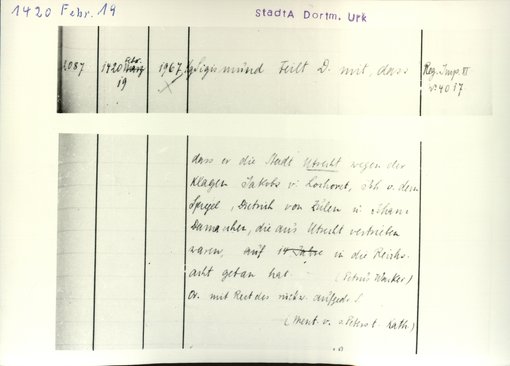 1420 Febr. 19
StadtA Dortm. Urk
1087 1420 Febr. 19 1967 Kg Sigismund teilt D. mit, dass Reg. Imp. XI
nr. 4017
dass er die Stadt Utrecht wegen der
Klagen Jakobs v. Joh v. dem
Spegel, Dietrich von Zülen u. Johann
die aus Utrecht vertrieben
waren, auf 14 Jahre in die Reichs-
acht getan hat. (Petrus Wacker)
Or. mit Rest des rückw. aufgedr. S
(Ment. v. Peters t. Kath.)